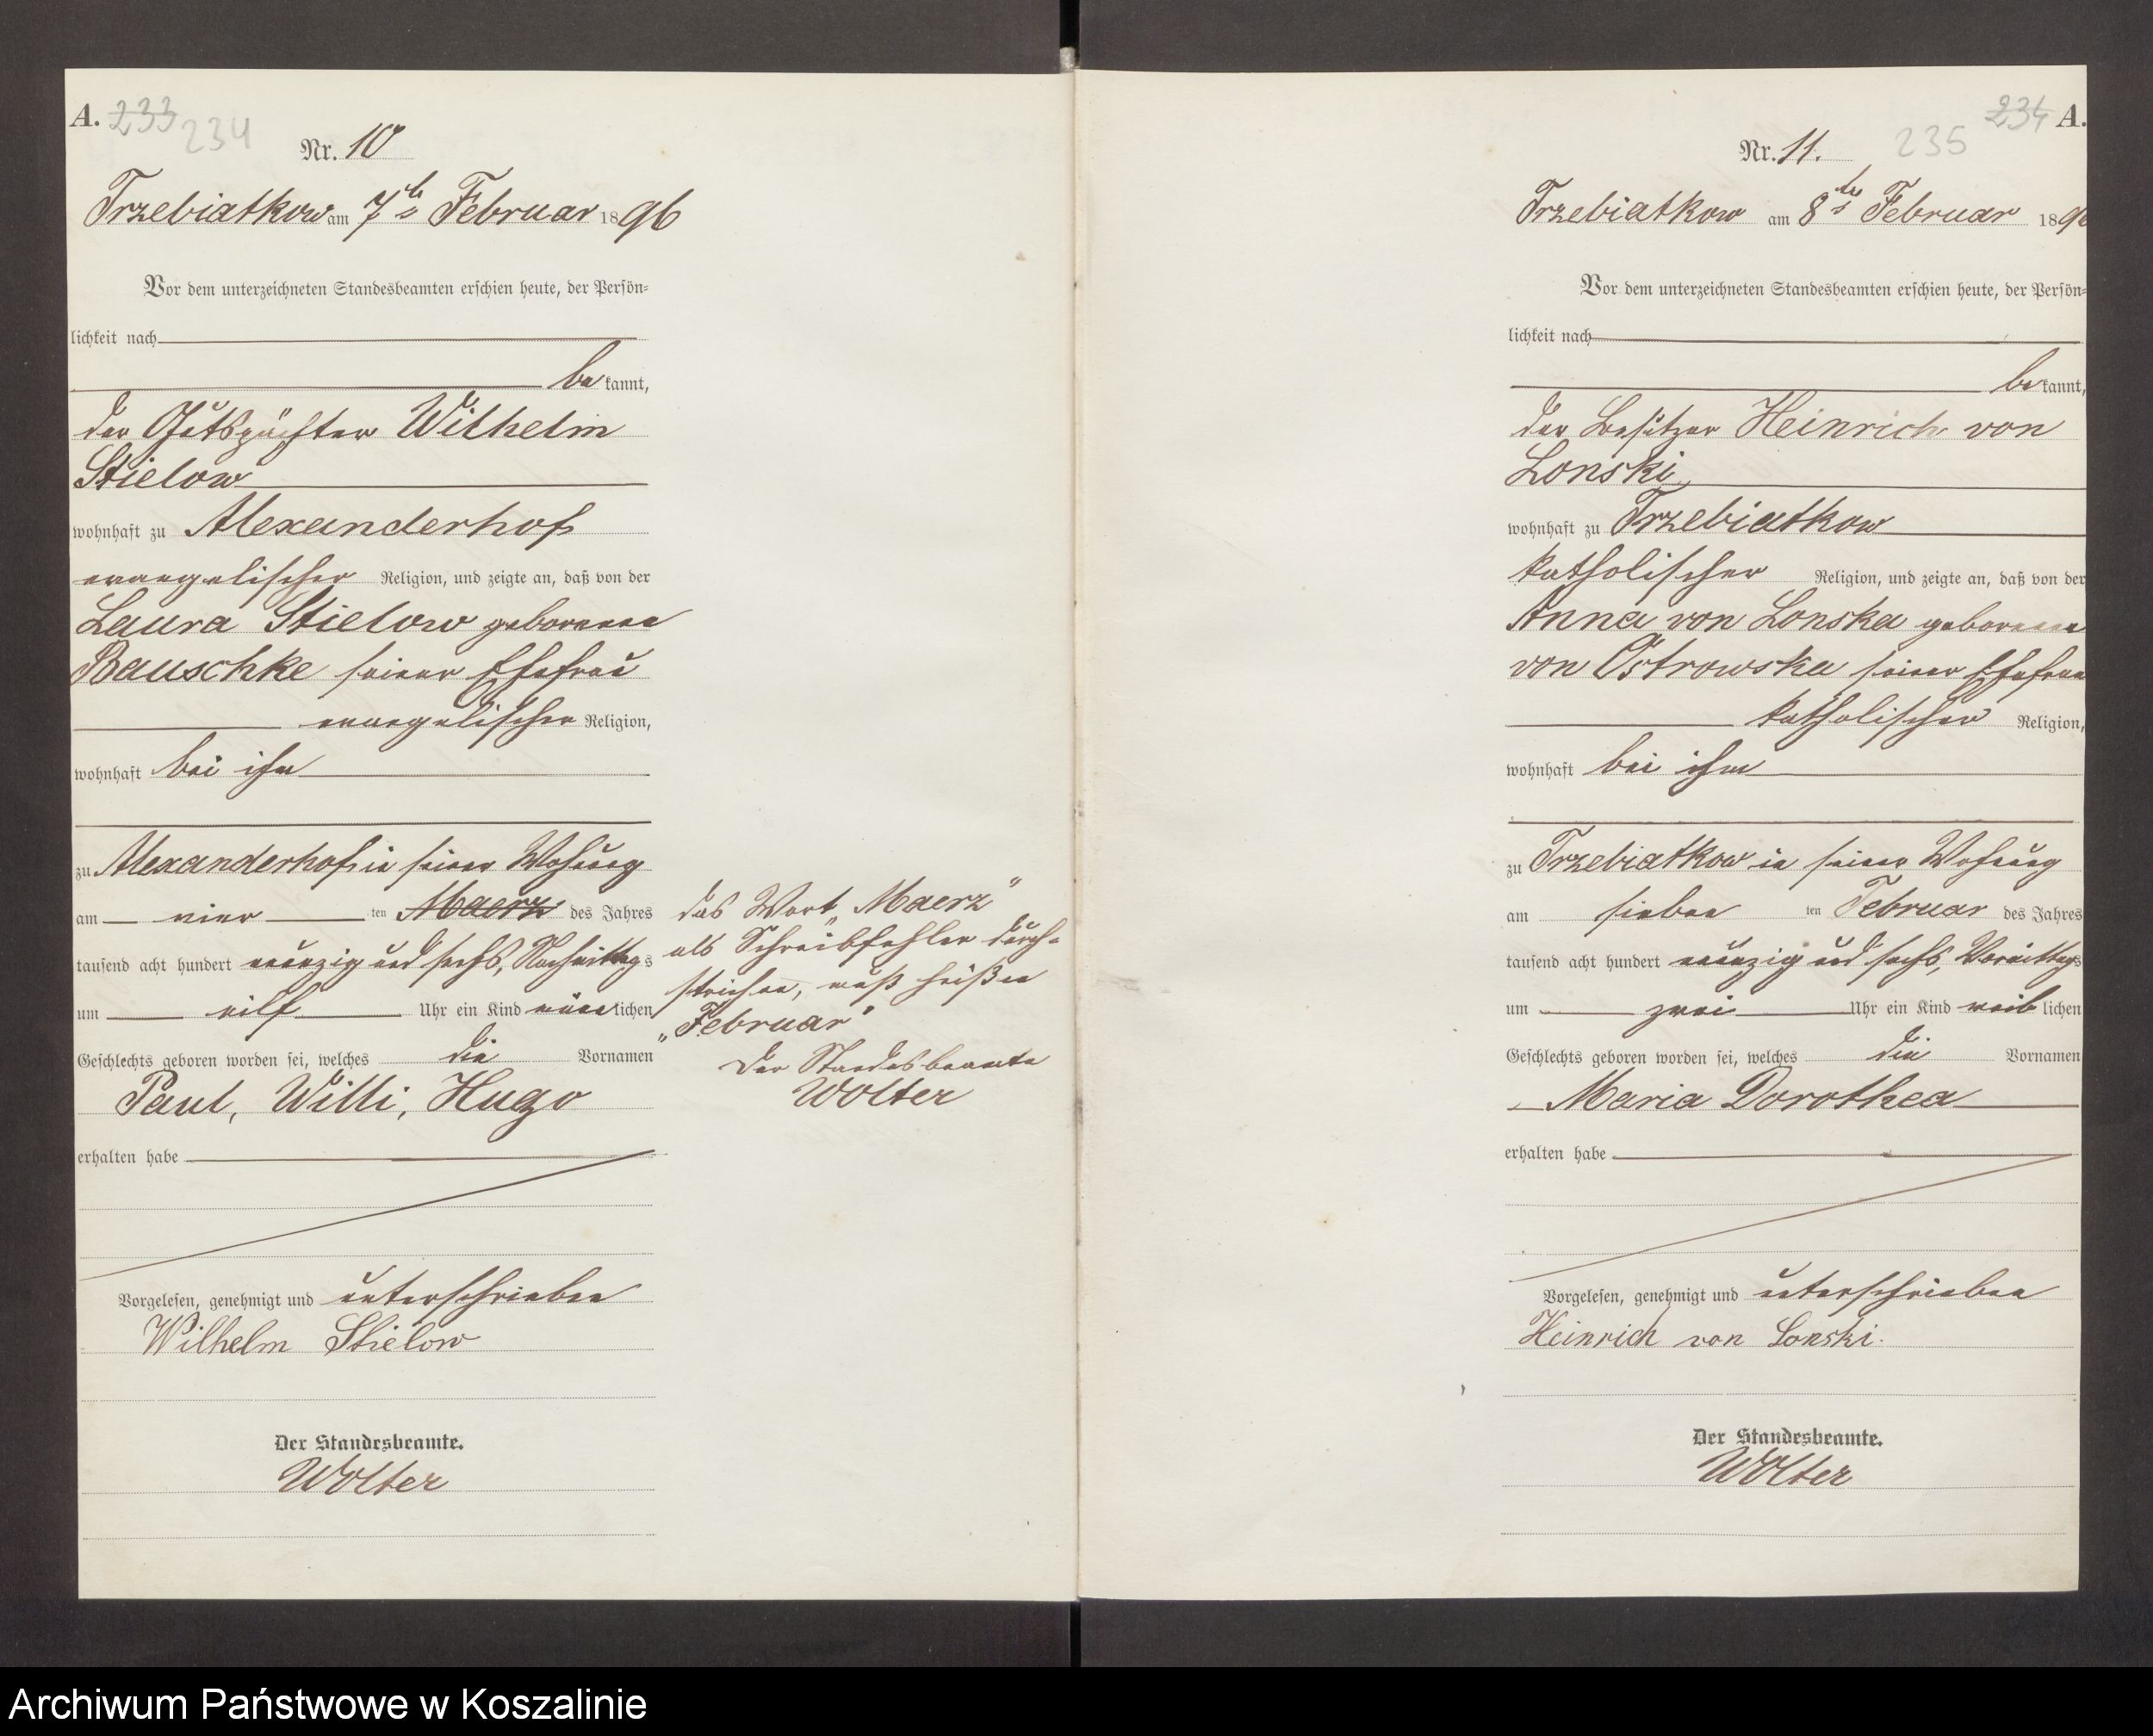 A. 233 234
Nr. 10
Trzebiatkow am 7ts Februar 1896
Vor dem unterzeichneten Standesbeamten erschien heute, der Persön=
lichkeit nach
be kannt,
der Gutspächter Wilhelm
Stielow
wohnhaft zu Alexanderhof
evangelischer Religion, und zeigte an, daß von der
Laura Stielow geborenen
Bauschke seiner Ehefrau
evangelischer Religion,
wohnhaft bei ihm
zu Alexanderhof in seiner Wohnung
am vier ten Maerz des Jahres
tausend acht hundert neunzig und sechs, Nachmittags
um eilf Uhr ein Kind männlichen
Geschlechts geboren worden sei, welches die Vornamen
Paul, Willi, Hugo
erhalten habe
Vorgelesen, genehmigt und unterschrieben
Wilhelm Stielow
Der Standesbeamte.
Wolter
das Wort „Maerz"
als Schreibfehler durch=
strichen, muß heißen
„Februar"
Der Standesbeamte
Wolter
234 A.
235
Nr. 11.
Trzebiatkow am 8ts Februar 1896
Vor dem unterzeichneten Standesbeamten erschien heute, der Persön=
lichkeit nach
be kannt,
der Besitzer Heinrich von
Lonski
wohnhaft zu Trzebiatkow
katholischer Religion, und zeigte an, daß von der
Anna von Lonska geborenen
von Ostrowska seiner Ehefrau
katholischer Religion,
wohnhaft bei ihm
zu Trzebiatkow in seiner Wohnung
am sieben ten Februar des Jahres
tausend acht hundert neunzig und sechs, Vormittags
um zwei Uhr ein Kind weib lichen
Geschlechts geboren worden sei, welches die Vornamen
Maria Dorothea
erhalten habe
Vorgelesen, genehmigt und unterschrieben
Heinrich von Lonski.
Der Standesbeamte.
Wolter
Archiwum Państwowe w Koszalinie